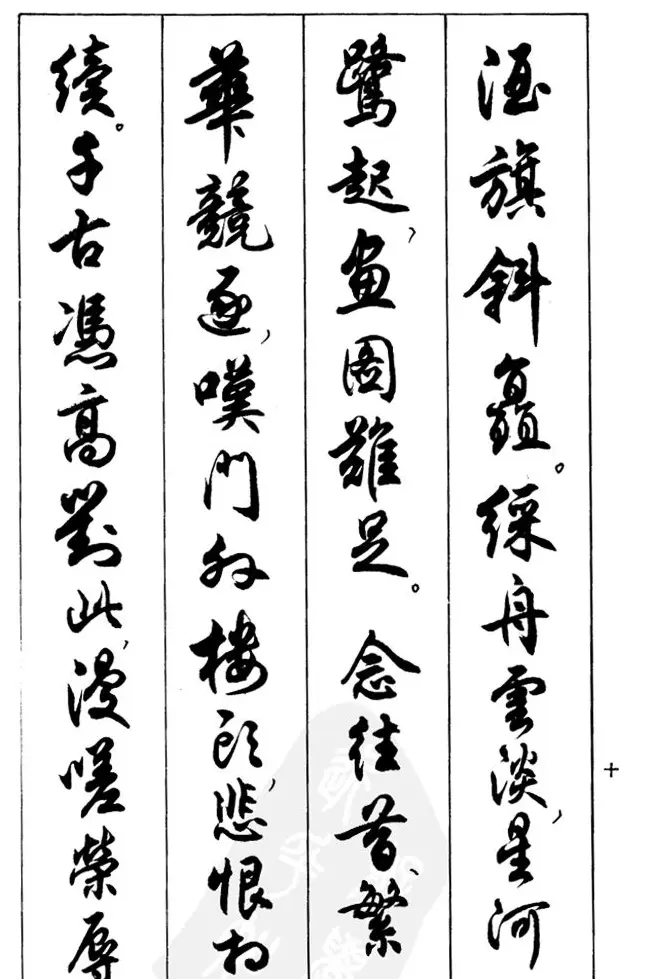 酒旗斜矗。綵舟雲淡,星河
鷺起,畫圖難足。念往昔繁
華競逐,嘆門外樓頭,悲恨相
續。千古憑高對此,漫嗟榮辱